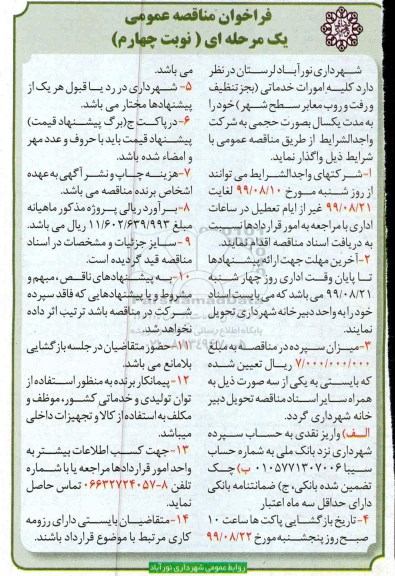 فراخوان مناقصه عمومی
یک مرحله ای ( نوبت چهارم )
شهرداری نورآباد لرستان در نظر
دارد کلیه امورات خدماتی (بجز تنظیف
و رفت و روب معابر سطح شهر) خود را
به مدت یکسال بصورت حجمی به شرکت
واجدالشرایط از طریق مناقصه عمومی با
شرایط ذیل واگذار نماید.
۱- شرکتهای واجدالشرایط می توانند
از روز شنبه مورخ ۹۹/۰۸/۱۰ لغایت
۹۹/۰۸/۲۱ غیر از ایام تعطیل در ساعات
اداری با مراجعه به امور قراردادها نسبت
به دریافت اسناد مناقصه اقدام نمایند.
۲- آخرین مهلت جهت ارائه پیشنهادها
تا پایان وقت اداری روز چهار شنبه
۹۹/۰۸/۲۱ می باشد که می بایست اسناد
خود را به واحد دبیرخانه شهرداری تحویل
نمایند.
۳- میزان سپرده در مناقصه به مبلغ
۷/۰۰۰/۰۰۰/۰۰۰ ریال تعیین شده
که بایستی به یکی از سه صورت ذیل به
همراه سایر اسناد مناقصه تحویل دبیر
خانه شهرداری گردد.
الف) واریز نقدی به حساب سپرده
شهرداری نزد بانک ملی به شماره حساب
سیبا ۰۱۰۵۷۷۱۳۰۷۰۰۶ ب) چک
تضمین شده بانکی، ج) ضمانتنامه بانکی
دارای حداقل سه ماه اعتبار
۴- تاریخ بازگشایی پاکت ها ساعت ۱۰
صبح روز پنجشنبه مورخ ۹۹/۰۸/۲۲
می باشد.
۵- شهرداری در رد یا قبول هر یک از
پیشنهادها مختار می باشد.
۶- در پاکت ج(برگ پیشنهاد قیمت)
پیشنهاد قیمت باید با حروف و عدد مهر
و امضاء شده باشد.
۷- هزینه چاپ و نشر آگهی به عهده
اشخاص برنده مناقصه می باشد.
۸- برآورد ریالی پروژه مذکور ماهیانه
مبلغ ۱۱/۶۰۲/۶۳۹/۹۹۳ ریال می باشد.
۹- سایز جزئیات و مشخصات در اسناد
مناقصه قید گردیده است.
۱۰- به پیشنهادهای ناقص، مبهم و
مشروط و یا پیشنهادهایی که فاقد سپرده
شرکت در مناقصه باشد ترتیب اثر داده
نخواهد شد.
۱۱- حضور متقاضیان در جلسه بازگشایی
بلامانع می باشد.
۱۲- پیمانکار برنده به منظور استفاده از
توان تولیدی و خدماتی کشور، موظف و
مکلف به استفاده از کالا و تجهیزات داخلی
میباشد.
۱۳- جهت کسب اطلاعات بیشتر به
واحد امور قراردادها مراجعه یا با شماره
تلفن ۸-۰۶۶۳۲۷۲۴۰۵۷ تماس حاصل
نماید.
۱۴- متقاضیان بایستی دارای رزومه
کاری مرتبط با موضوع قرارداد باشند.
روابط عمومی شهرداری نورآباد